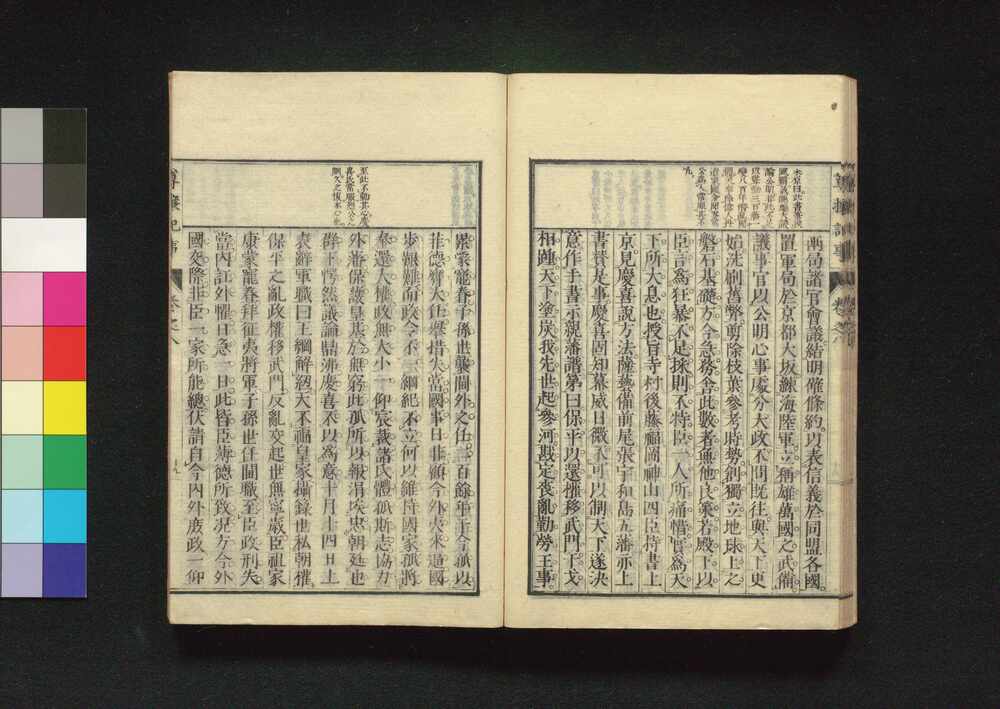 兩局諸官會議結明確條約。以表信義於同盟各國。
置軍局於京都大坂練海陸軍立稱雄萬國之武備。
議事官以公明心事處分大政不問既往與天下更
始洗刷舊弊剪除枝葉參考時勢創獨立地球上之
磐石基礎。方今急務舍此數者無他良策若殿下以
臣言爲狂暴不足採則不特臣一人所痛惜實爲天
下所大息也授旨寺村後藤福岡神山四臣持書上
京見慶喜說方法薩藝備前尾張宇和島五藩亦上
書贊是事慶喜固知幕威日微不可以制天下遂決
意作手書示親藩譜第曰保平以還權移武門干戈
相踵天下塗炭我先世起參河戡定喪亂勤勞王事。
累蒙寵眷子孫世襲閫外之任三百餘年于今孤以
菲德膺大任舉措失當國事日非顧今外夷來逼國
步艱難而政令不一綱紀不立何以維持國家孤將
奉還大權政無大小一仰宸裁諸氏體孤斯志協力
外藩保護皇基於無窮此孤所以報涓埃忠朝廷也
群下愕然議論鼎沸慶喜不以爲意十月十四日上
表辭軍職曰王綱解紐大不福皇家攝籙也私朝權
保平之亂政權移武門反亂交起世無寧歲臣祖家
康蒙寵眷拜征夷將軍子孫世任閫職至臣政刑失
當內訌外懼日急一日此皆臣薄德所致況方今外
國交際非臣一家所能總伏請自今內外庶政一仰